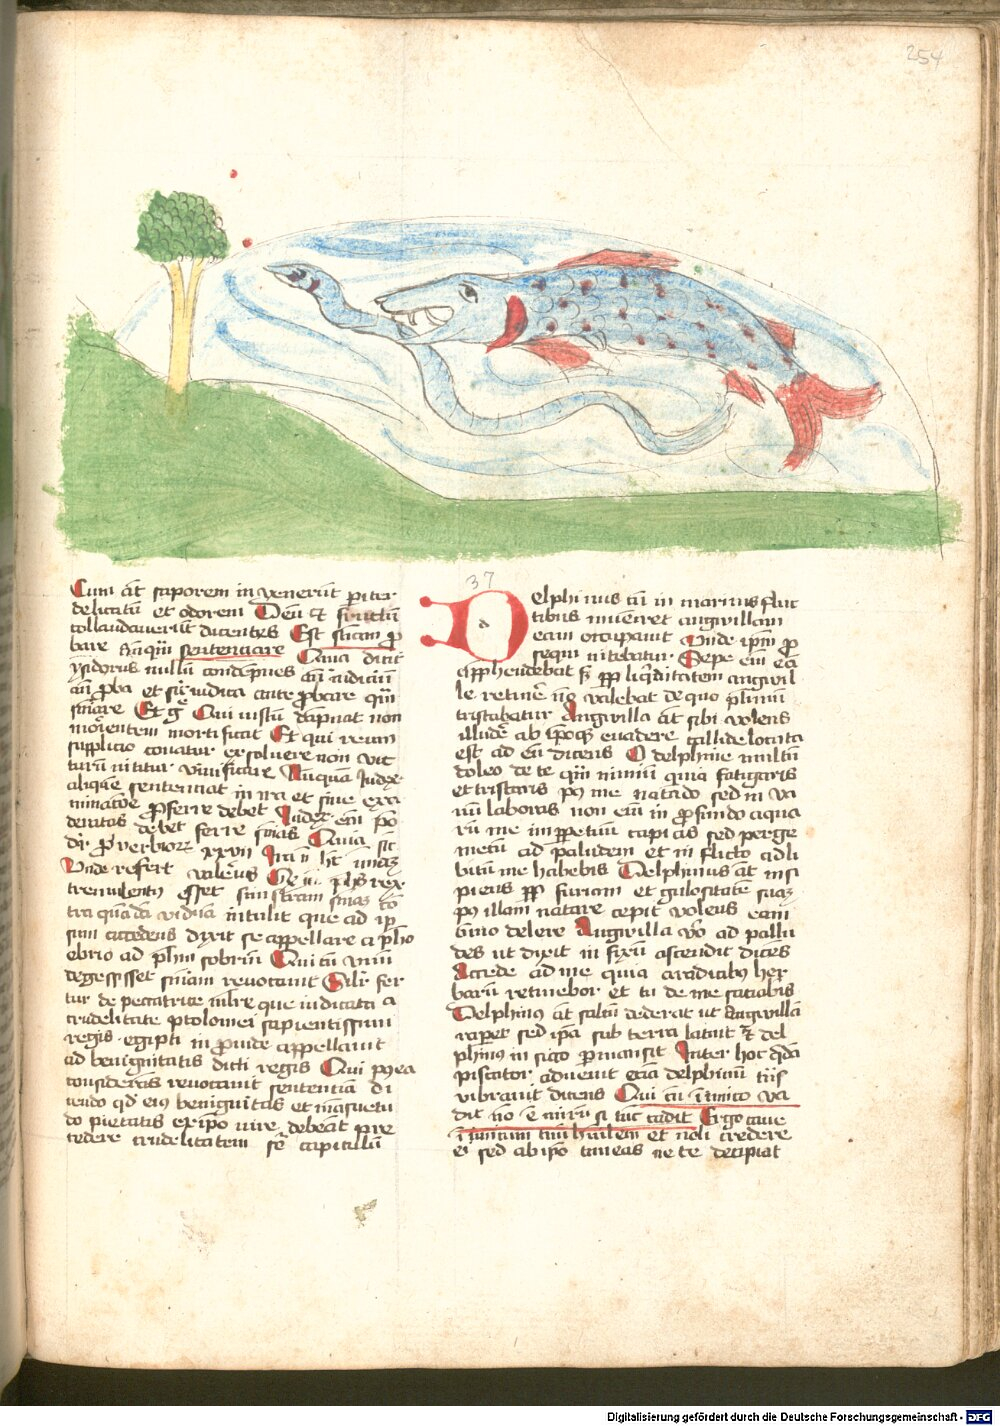 254
Cum at saporem invenerut pariter
delicatu et odorem Deu et fructu
collaudaverut dicentes Est
bare anqm sentenciare Quia dicit
ysidorus nullu condepnes an iudiciu
an proba et sic iudica ante probare qm
Et Qui iustu dapnat non
morientem mortificat Et qui reum
supplicio conatur exsoluere non vic
turu nititur viuificare Nunqua Iudex
aliquis sentenciat in ira et sine exa
minatione proferre debet Iudex enim
debet ferre Quia
prouerbiorum xxvii Ira non habet
Unde refert valerius rex
temulentus esset
tra quada vidua intulit que ad
sum accedens dixit se appellare a pho
ebrio ad phm sobriu Qui cu vinu
degessisset sniam reuocauit Silr fer
tur de peccatrice mlre que iudicata a
crudelitate ptolomei sapientissimi
regis egipti in proinde appellauit
ad benignitatis dicti regis Qui postea
considerans reuocauit sentenciam di
cendo qd eius benignitas et mansuetu
do pietatis ex ipo iure debeat pre
cedere crudelitatem capitulu
37
Delphinus cu in marinis fluc
tibus inueniret anguillam
eam occupauit Unde ipam
sequi nitebatur Sepe eni ea
apprehendebat sed propter liquiditatem anguil
le retinere no valebat de quo plimu
tristabatur Anguilla at sibi volens
illudere ab ipoque euadere callide locuta
est ad eu dicens O delphine multu
doleo de te qm nimiu quia fatigaris
et tristaris post me natado sed in va
nu laboras non eni in profundo aqua
ru me imppetuu capias sed perge
mecu ad paludem et in sicco ad li
bitu me habebis Delphinus at insi
piens propter furiam et gulositate suam
post illam natare cepit volens eam
omnino delere Anguilla vero ad palu
des ut dixit in fixu ascendit dices
Accede ad me quia a radicibus her
baru retinebor et tu de me saciabis
Delphinus at saltu dederat ut Anguilla
raperet sed ipa sub terra latuit et del
phinus in sicco permansit Inter hoc quida
piscator aduenit etia delphinu
vibrauit dicens Qui cu inimico va
dit no e miru si tuc cadit Ergo caue
inimicum tuum humilem et noli credere
ei sed ab ipo timeas ne te decipiat
Digitalisierung gefördert durch die Deutsche Forschungsgemeinschaft - DFG